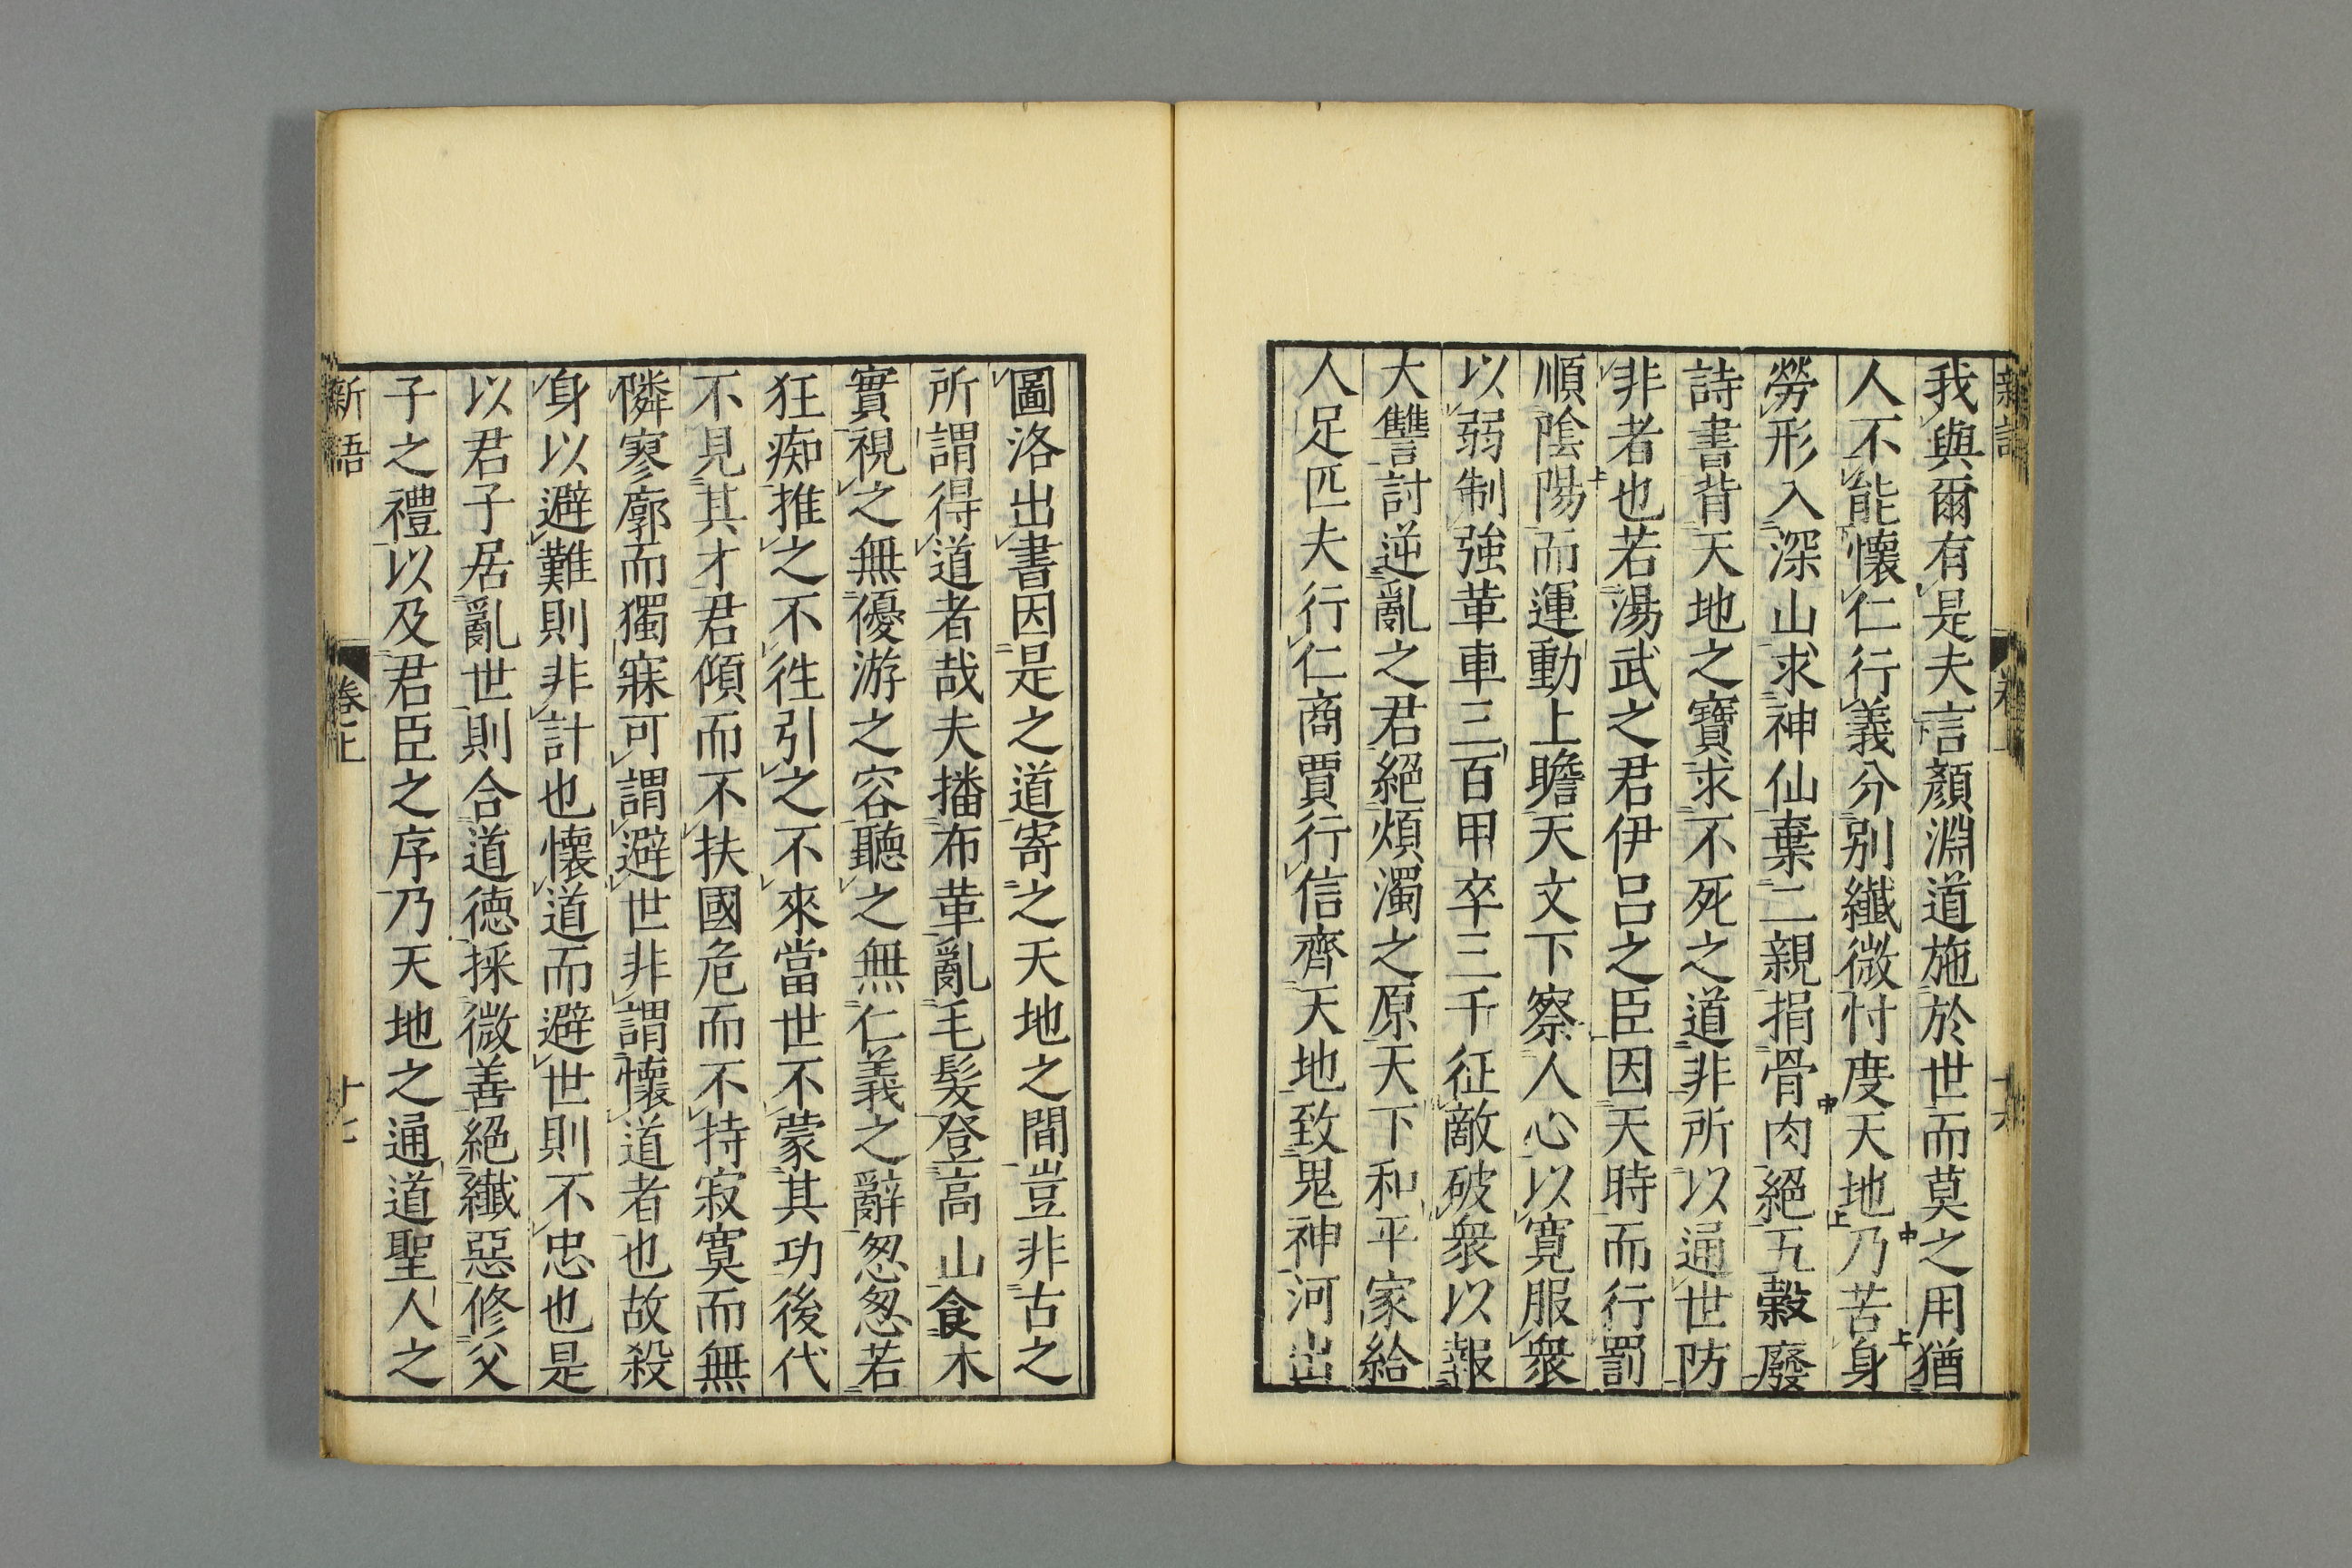 我與爾有是夫言顏淵道施於世而莫之用猶
人不能懷仁行義分别纖微忖度天地乃苦身
勞形入深山求神仙棄二親捐骨肉絕五穀廢
詩書背天地之寶求不死之道非所以通世防
非者也若湯武之君伊吕之臣因天時而行罰
順陰陽而運動上瞻天文下察人心以寬服衆
以弱制強革車三百甲卒三千征敵破衆以報
大讐討逆亂之君絕煩濁之原天下和平家給
人足匹夫行仁商賈行信齊天地致鬼神河出
圖洛出書因是之道寄之天地之間豈非古之
所謂得道者哉夫播布革亂毛髮登高山食木
實視之無優游之容聽之無仁義之辭怱怱若
狂痴推之不徃引之不來當世不蒙其功後代
不見其才君傾而不扶國危而不持寂寞而無
憐寥廓而獨寐可謂避世非謂懷道者也故殺
身以避難則非計也懷道而避世則不忠也是
以君子居亂世則合道德採微善絕纖惡修父
子之禮以及君臣之序乃天地之通道聖人之
新語 卷上 十七